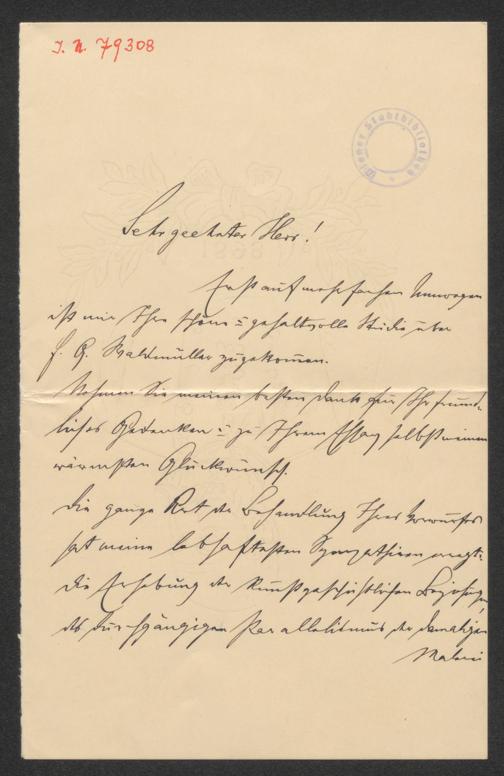 I. N. 79308
Wiener Stadtbibliothek
Sehrgeehrter Herr!
Erst auf mehrfachen Umwegen
ist mir Ihre schöne u gehaltvolle Studie über
F. G. Waldmüller zugekommen.
Nehmen Sie meinen besten Dank für Ihr freund-
liches Gedenken u zu Ihrem Essay selbst meinen
wärmsten Glückwunsch.
Die ganze Art der Behandlung Ihres Vorwurfes
hat meine lebhaftesten Sympathieen erregt:
die Erhebung der kunstgeschichtlichen Beziehungen,
des durchgängigen Parallelismus der damaligen
Malerei